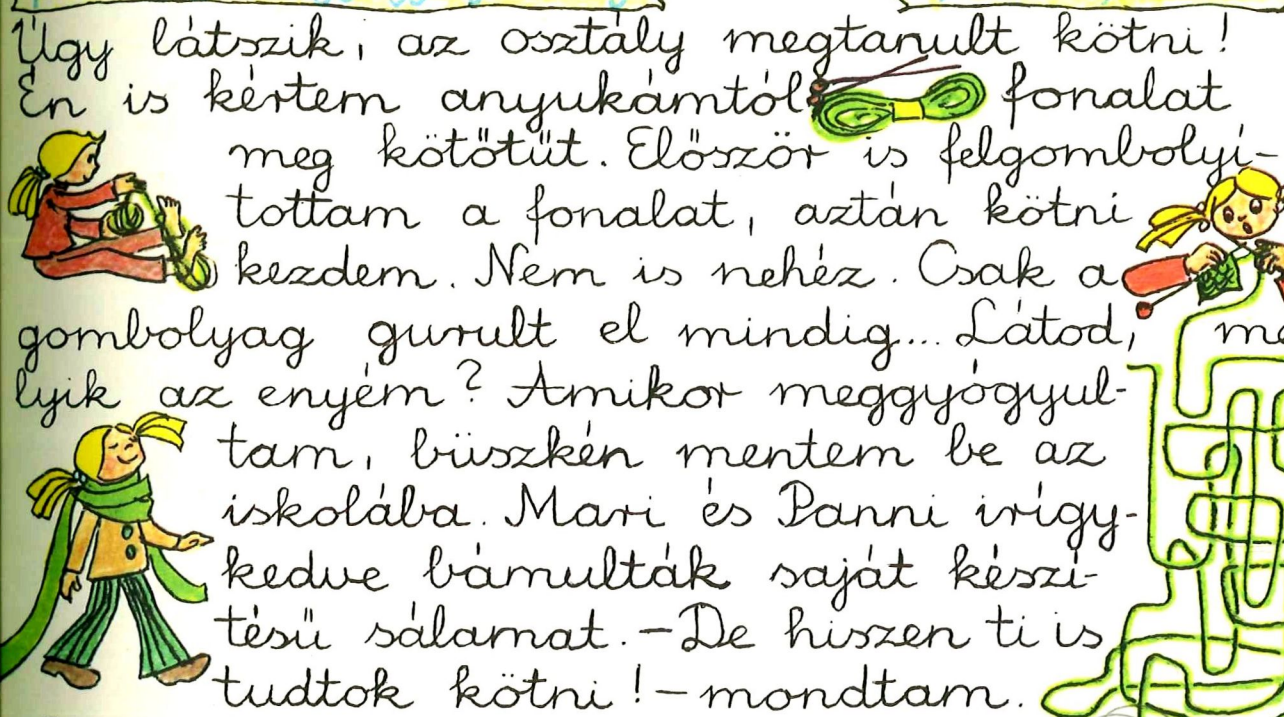 Úgy látszik, az osztály megtanult kötni!
Én is kértem anyukámtól fonalat
meg kötőtűt. Először is felgombolyí-
tottam a fonalat, aztán kötni
kezdem. Nem is nehéz. Csak a
gombolyag gurult el mindig... Látod, me
lyik az enyém? Amikor meggyógyul-
tam, büszkén mentem be az
iskolába. Mari és Panni irígy-
kedve bámulták saját készí-
tésű sálamat. – De hiszen ti is
tudtok kötni! – mondtam.